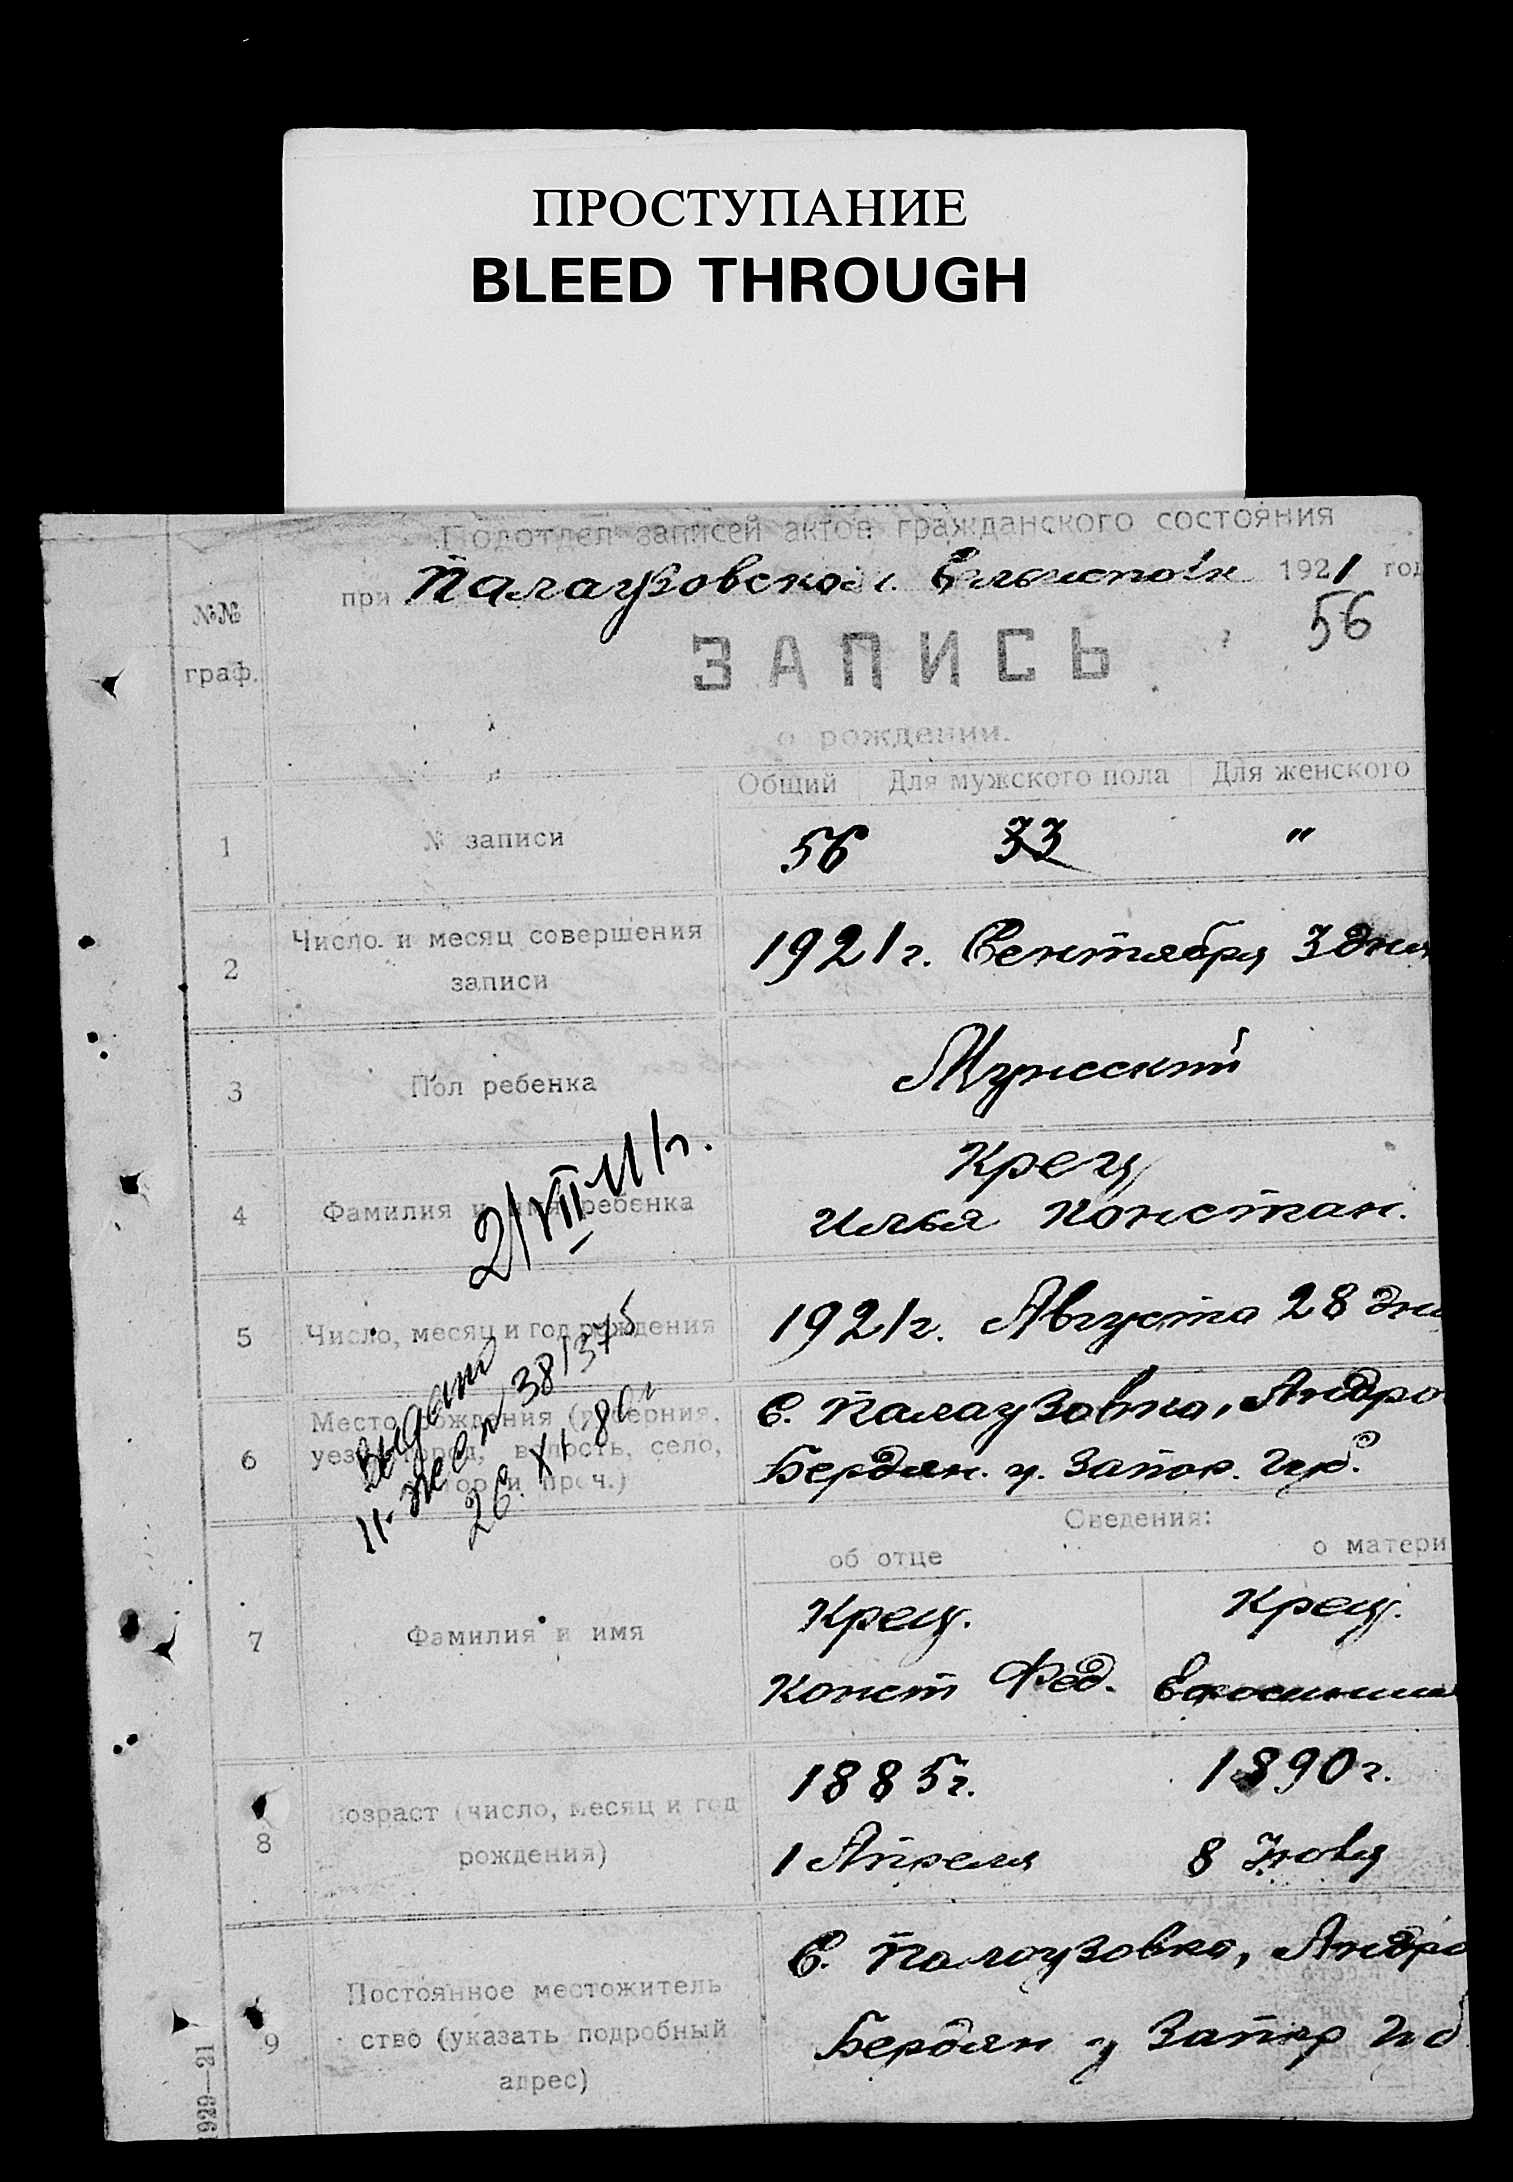 ПРОСТУПАНИЕ
BLEED THROUGH
Подотдел записей актов гражданского состояния
при Палаузовском 1921 год
56
№№
граф.
ЗАПИСЬ
о рождении.
Общий Для мужского пола Для женского
1 № записи 56 33 "
2 Число и месяц совершения
записи
1921г. Сентября 3 дня
3 Пол ребенка Мужсский
4 Фамилия и имя ребенка
Крец
Илья Констан.
5 Число, месяц и год рождения 1921г. Августа 28 дня
6 Место рождения (губерния,
уезд, город, волость, село,
хутор и проч.)
С. Палаузовка, Андро
Бердян. у. Запор. Губ.
21/VII
Выдано
38/375
26. XI 80г
Сведения:
об отце о матери
7 Фамилия и имя
Крец. Крец.
Конст Фед. Ефросиния
8 Возраст (число, месяц и год
рождения)
1885г. 1890г.
1 Апреля 8 Июля
9 Постоянное местожитель
ство (указать подробный
адрес)
С. Палаузовка, Андро
Бердян у Запор Губ
1929—21